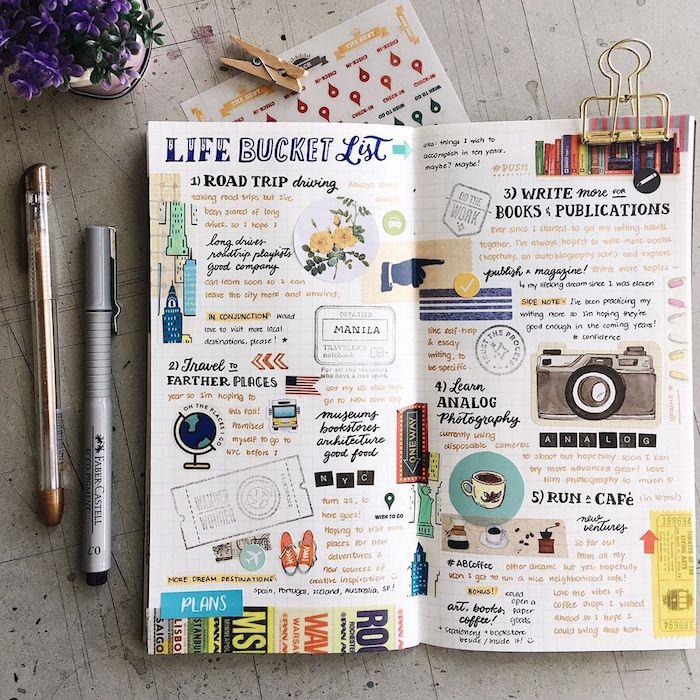 THE BEST
CHECK-IN
WISH TO GO
LIFE BUCKET List
1) ROAD TRIP driving
taking road trips but I've
been scared of long
drives, so I hope I
long drives
roadtrip playlists
good company
can learn soon so I can
leave the city more and unwind.
IN CONJUNCTION would
love to visit more local
destinations, please! *
DEPARTED
MANILA
TRAVELER'S
notebook
For all the travelers
who have a free spirit.
2) Travel to
FARTHER PLACES
Got my US visa this
year so I'm hoping to
go to New York City
this fall!
Promised
myself to go to
NYC before I
OH THE PLACES I GO
museums
bookstores
architecture
good food
NYC
turn 25, so
here goes!
WISH TO GO
Hoping to visit more
places for new
adventures &
new sources of
creative inspiration
MORE DREAM DESTINATIONS:
Spain, Portugal, Iceland, Australia, SF!
PLANS
SAIGO
LISBO
ISTANBUL
MS
WARSA
WAW
ROCHESTER
ROC
aka: things I wish to
accomplish in ten years.
maybe? Maybe!
#PUSH
DO THE
WORK
3) WRITE more FOR
BOOKS & PUBLICATIONS
Ever since I started to get my writing habits
together, I've always hoped to write more books
(hopefully, an autobiography soon) and explore
publish a magazine!
more topics
my lifelong dream since I was eleven
like self-help
& essay
writing, to
be specific.
SIDE NOTE: I've been practicing my
writing more so I'm hoping they're
good enough in the coming years!
# confidence
TRUST THE PROCESS
4) Learn
ANALOG
Photography
currently using
disposable cameras
ONE WAY
ANALOG
to shoot but hopefully soon I can
try more advanced gear! Love
film photography so much
5) RUN a CAFé (in 10 yrs!)
new
ventures
so far out
from all my
#ABCoffee other dreams but yes, hopefully
soon I get to run a nice neighborhood cafe!
BONUS!
could
open a
paper
goods
art, books,
coffee!
+ stationery + bookstore
beside / inside it!
Love the vibes of
coffee shops I visited
abroad so I hope I
could bring that here.
186694
FABER-CASTELL
0.7